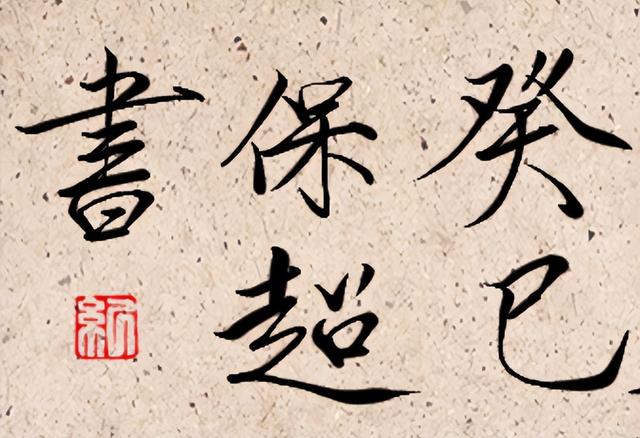 癸巳
保超
書